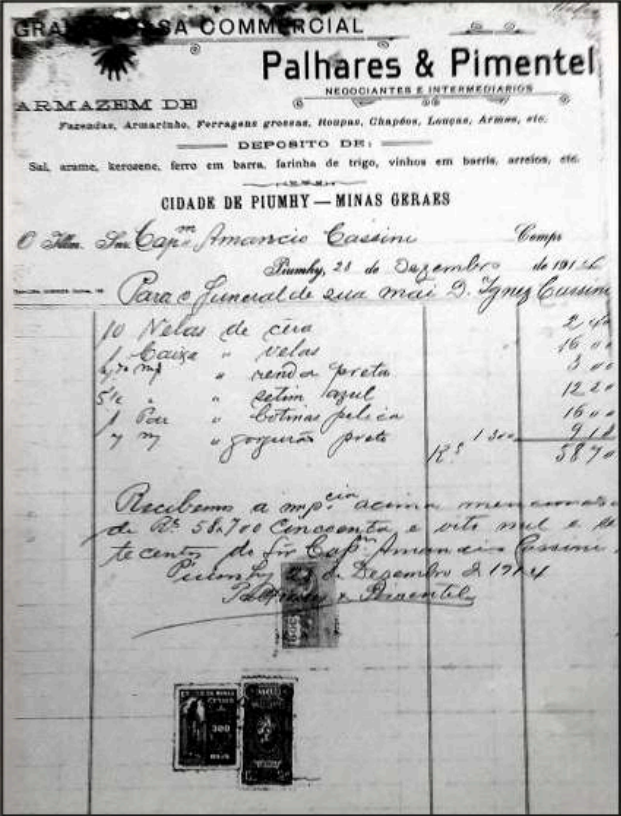 COMMERCIAL
Palhares & Pimentel
NEGOCIANTES E INTERMEDIARIOS
ARMAZEM DE
Fazendas, Armarinho, Ferragens grossas, Roupas, Chapéos, Louças, Armas, etc.
DEPOSITO DE:
Sal, arame, kerozene, ferro em barra, farinha de trigo, vinhos em barris, arreios, etc.
CIDADE DE PIUMHY — MINAS GERAES
O Illm. Snr. Capm Amancio Cassini Compr
Piumhy, 23 de Dezembro de 1914
Para o funeral de sua mai D. Ignez Cassini
10 Velas de cêra
1 Caixa " velas 1600
" renda preta 300
" setim azul 1220
1 Par " botinas pelica 1600
7 m " gorgurão preto 1300 918
Rs 5870
Recibemos a impcia acima mencionada
de Rs. 58.700 Cincoenta e oito mil e se
te centos do Snr Capm Amancio Cassini.
Piumhy 23 de Dezembro d 1914
Palhares & Pimentel
300